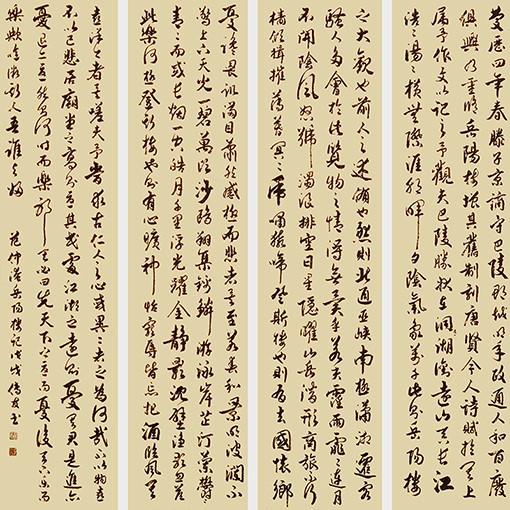 慶曆四年春滕子京謫守巴陵郡越明年政通人和百廢
俱興乃重脩岳陽樓增其舊制刻唐賢今人詩賦於其上
屬予作文以記之予觀夫巴陵勝狀在洞湖銜遠山吞長江
浩浩湯湯橫無際涯朝暉夕陰氣象萬千此則岳陽樓
之大觀也前人之述備也然則北通巫峽南極瀟湘遷客
騷人多會於此覽物之情得無異乎若夫霪雨霏霏連月
不開陰風怒號濁浪排空日星隱曜山岳潛形商旅不行
檣傾楫摧薄暮冥冥虎嘯猿啼登斯樓也則有去國懷鄉
憂讒畏譏滿目蕭然感極而悲者矣至若春和景明波瀾不
驚上下天光一碧萬頃沙鷗翔集錦鱗游泳岸芷汀蘭鬱鬱
青青而或長烟一空皓月千里浮光躍金靜影沈璧漁歌互答
此樂何極登斯樓也則有心曠神怡寵辱皆忘把酒臨風其
喜洋洋者矣嗟夫予嘗求古仁人之心或異二者之為何哉不以物喜
不以己悲居廟堂之高則憂其民處江湖之遠則憂其君是進亦
憂退亦憂然則何時而樂耶其必曰先天下之憂而憂後天下之樂而
樂歟噫微斯人吾誰與歸
范仲淹岳陽樓記戊戌書